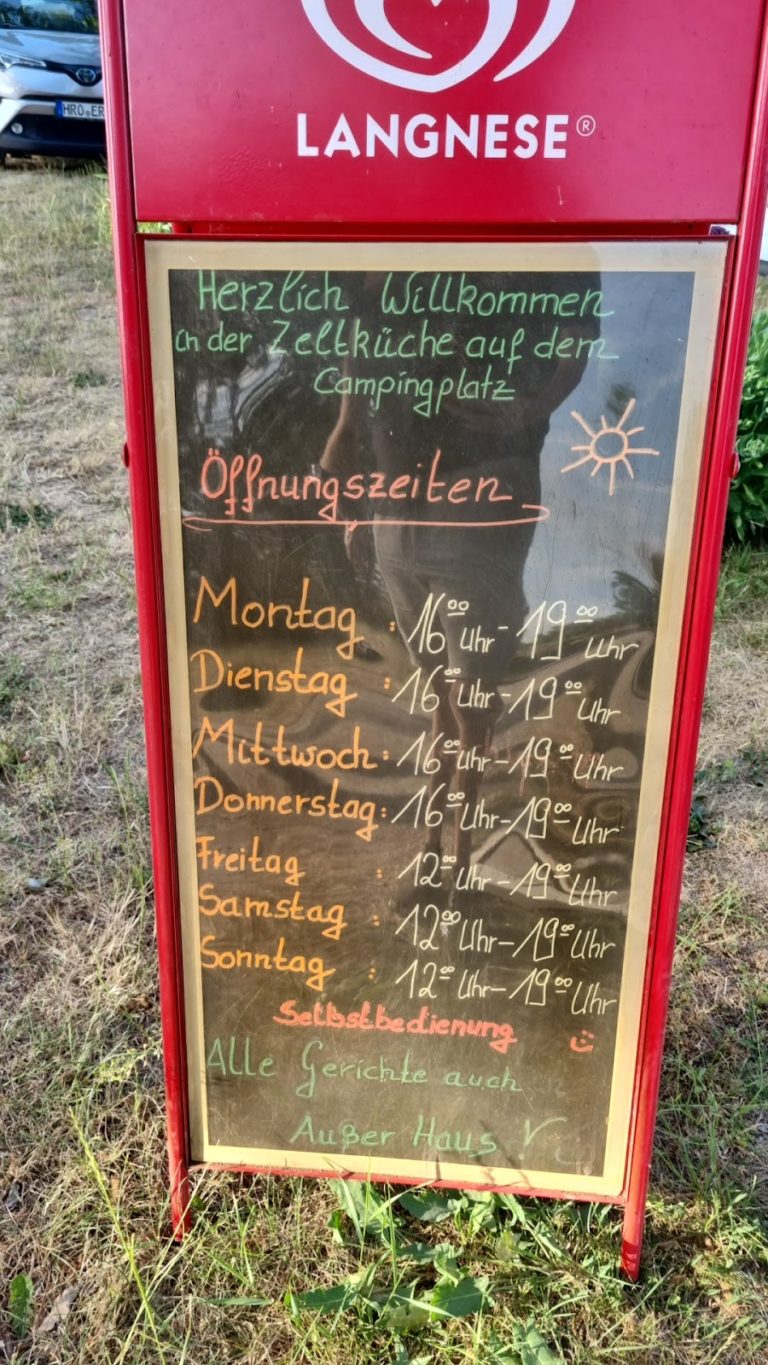 HRO ER
LANGNESE®
Herzlich Willkommen
in der Zeltküche auf dem
Campingplatz
Öffnungszeiten
Montag : 16⁰⁰ Uhr - 19⁰⁰ Uhr
Dienstag : 16⁰⁰ Uhr - 19⁰⁰ Uhr
Mittwoch : 16⁰⁰ Uhr - 19⁰⁰ Uhr
Donnerstag : 16⁰⁰ Uhr - 19⁰⁰ Uhr
Freitag : 12⁰⁰ Uhr - 19⁰⁰ Uhr
Samstag : 12⁰⁰ Uhr - 19⁰⁰ Uhr
Sonntag : 12⁰⁰ Uhr - 19⁰⁰ Uhr
Selbstbedienung
Alle Gerichte auch
Außer Haus !